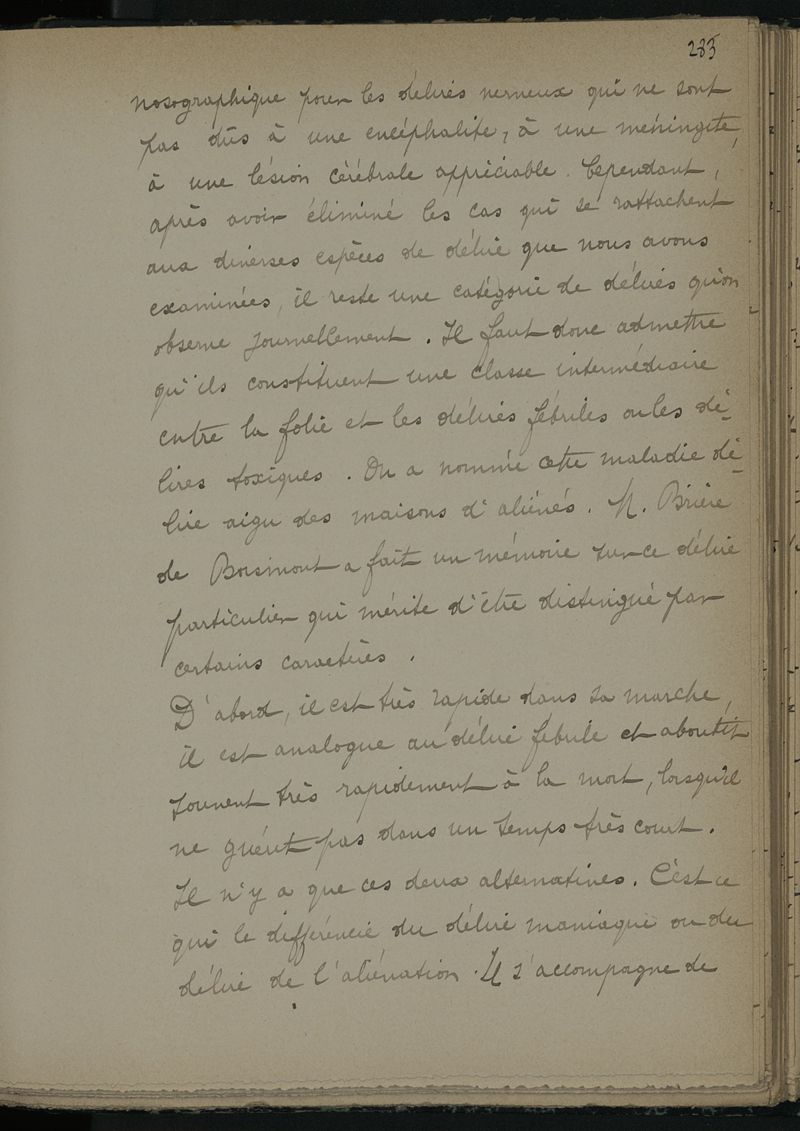 283
nosographique pour les délires nerveux qui ne sont
pas dûs à une encéphalite, à une méningite,
à une lésion cérébrale appréciable. Cependant,
après avoir éliminé les cas qui se rattachent
aux diverses espèces de délire que nous avons
examinées, il reste une catégorie de délires qu'on
observe journellement. Il faut donc admettre
qu'ils constituent une classe intermédiaire
entre la folie et les délires fébriles ou les dé-
lires toxiques. On a nommé cette maladie dé-
lire aigu des maisons d'aliénés. M. Brière
de Boismont a fait un mémoire sur ce délire
particulier qui mérite d'être distingué par
certains caractères.
D'abord, il est très rapide dans sa marche,
il est analogue au délire fébrile et aboutit
souvent très rapidement à la mort, lorsqu'il
ne guérit pas dans un temps très court.
Il n'y a que ces deux alternatives. C'est ce
qui le différencie du délire maniaque ou du
délire de l'aliénation. Il s'accompagne de